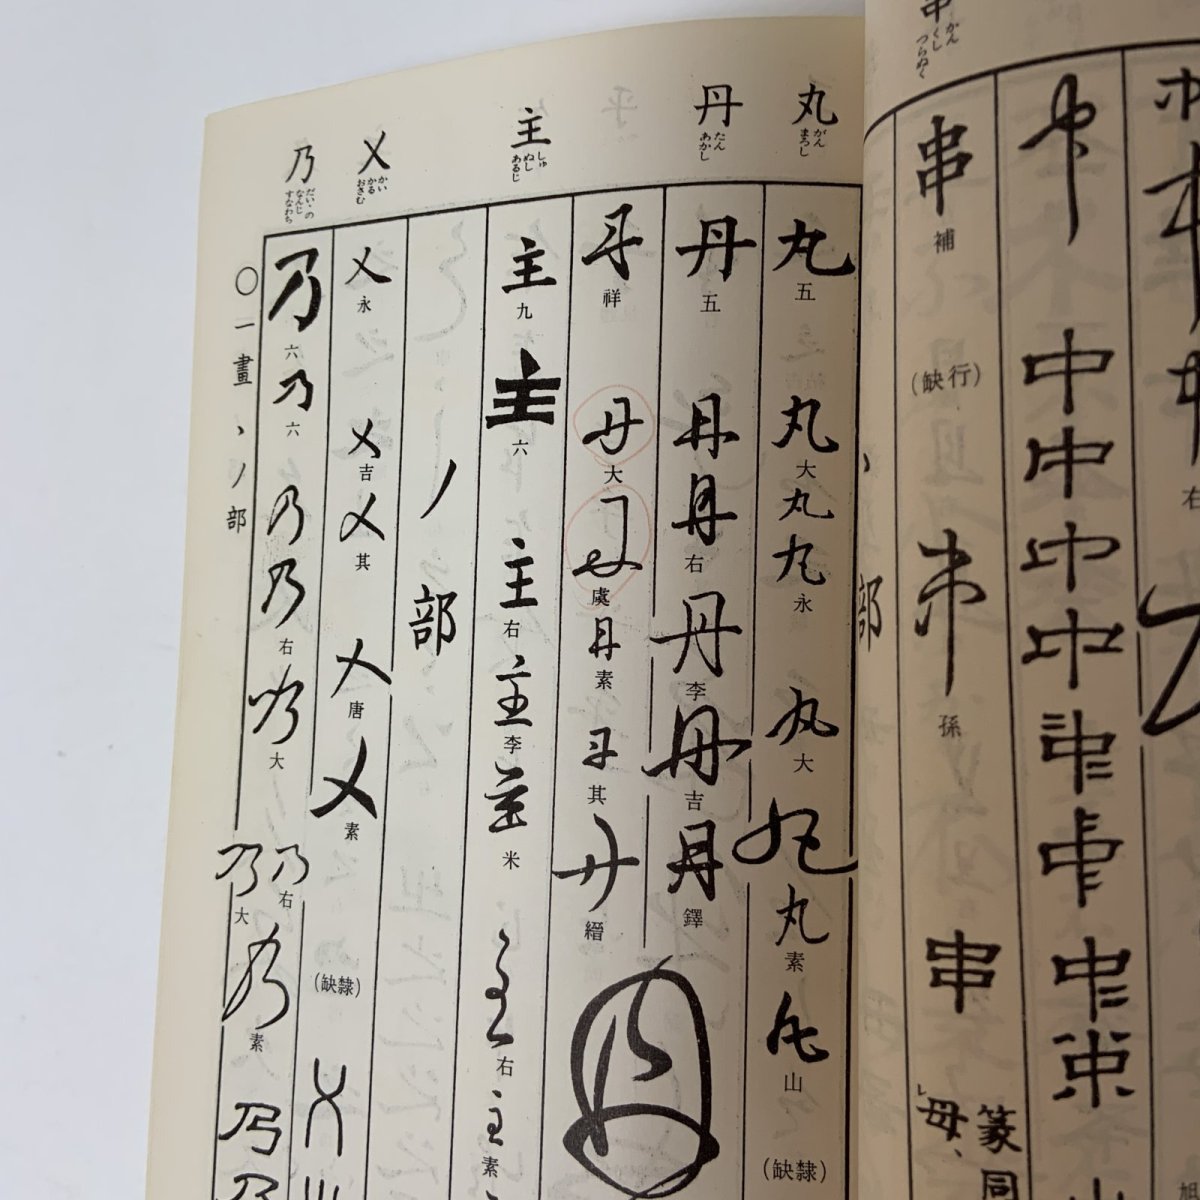 串
がん
くし
つらぬく
串
補
(缺行)
孫
串
篆同
毋、
中
右
丸
がん
まろし
丸
五
丸
大
丸
丸
永
丸
大
丸
丸
素
丸
山
(缺隸)
丹
たん
あかし
丹
五
丹
丹
右
丹
李
丹
吉
丹
鐸
丹
祥
丹
大
丹
虞
丹
素
丹
其
丹
縉
主
しゅ
ぬし
あるじ
主
九
主
六
主
右
主
李
主
米
主
右
主
素
丿部
乂
かい
かる
おさむ
乂
永
乂
吉
乂
其
乂
唐
乂
素
(缺隸)
乂
乃
だい・の
なんじ
すなわち
乃
六
乃
六
乃
乃
右
乃
大
乃
右
乃
大
乃
素
乃
乃
〇一畫丶丿部
部